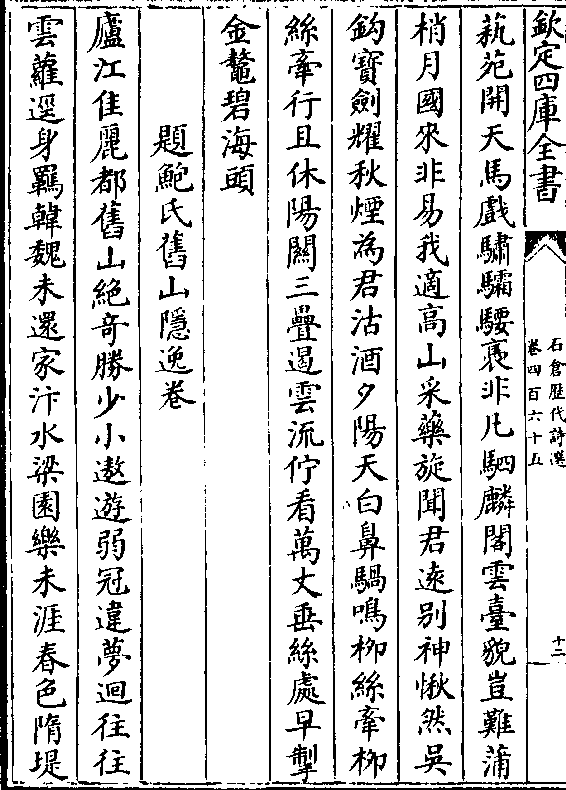 欽定四庫全書
石倉歴代詩選
卷四百六十五
十二
蓺苑開天馬戲驌驦騕褭非凡駟麟閣雲臺貌豈難蒲
梢月國來非易我適高山采藥旋聞君逺别神愀然吳
鈎寶劍耀秋煙為君沽酒夕陽天白鼻騧鳴柳絲牽柳
絲牽行且休陽闗三疊遏雲流佇看萬丈垂絲處早掣
金鼇碧海頭
題鮑氏舊山隱逸卷
廬江佳麗都舊山絶奇勝少小遨遊弱冠違夢迴往往
雲蘿逕身羈韓魏未還家汴水梁園樂未涯春色隋堤